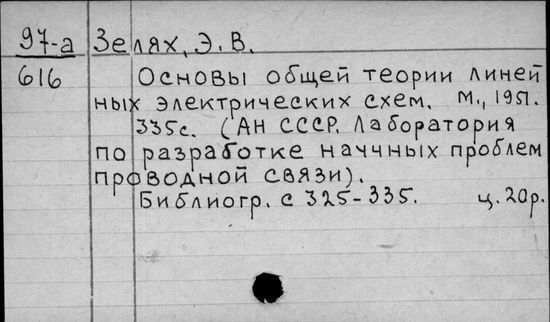 97-а Зелях, Э. В.
616 Основы общей теории линей
ных электрических схем. М., 1951.
335с. (АН СССР. Лаборатория
по разработке наччных проблем
проводной связи).
Библиогр. с 325-335. ц. 20р.